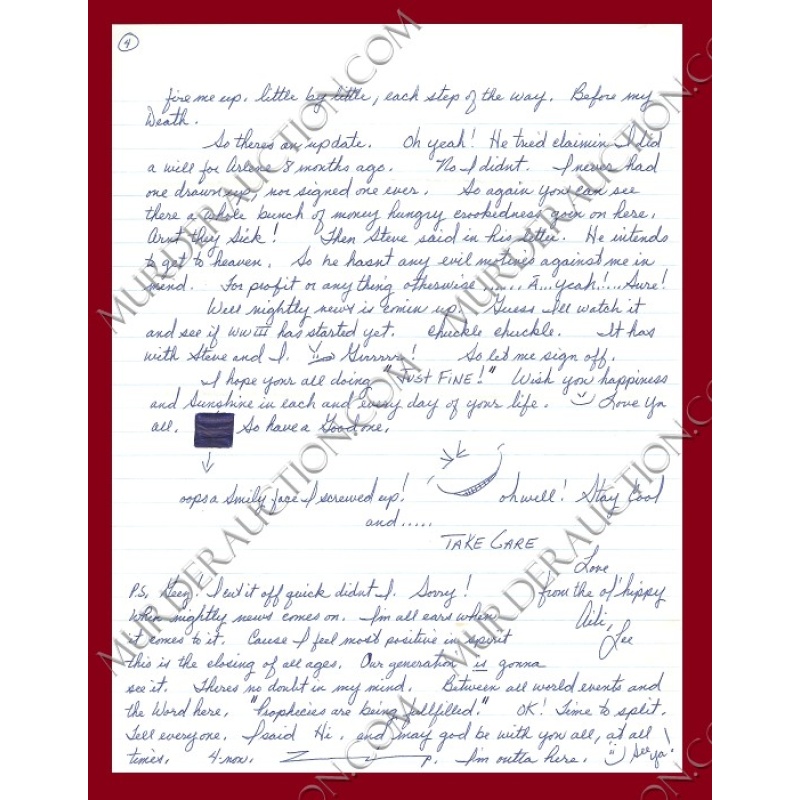 4
fire me up. little by little, each step of the way. Before my
Death.
So theres an update. Oh yeah! He tried claimin I did
a will for Arlene 8 months ago. No I didnt. I never had
one drawn up, nor signed one ever. So again you can see
there a whole bunch of money hungry crookedness goin on here.
Arnt they Sick! Then Steve said in his letter. He intends
to get to heaven. So he hasnt any evil motives against me in
mind. For profit or any thing otherwise ...... A...yeah!... Sure!
Well nightly news is comin up. Guess I'll watch it
and see if WW III has started yet. chuckle chuckle. It has
with Steve and I. Grrrrrr! So let me sign off.
I hope your all doing "JUST FINE!" Wish you happiness
and Sunshine in each and every day of your life. Love Ya
all. So have a Good one.
oops a Smily face I screwed up! oh well! Stay Cool
and.....
TAKE CARE
Love
P.S. Geez! I cut it off quick didnt I. Sorry! from the ol' hippy
When nightly news comes on. I'm all ears when Aili,
it comes to it. Cause I feel most positive in spirit Lee
this is the closing of all ages. Our generation is gonna
see it. Theres no doubt in my mind. Between all world events and
the Word here, "Prophicies are being fullfilled." OK! Time to split.
Tell everyone. I said Hi. and may god be with you all, at all
times. 4-now. I'm outta here. See Ya!
MURDERAUCTION.COM